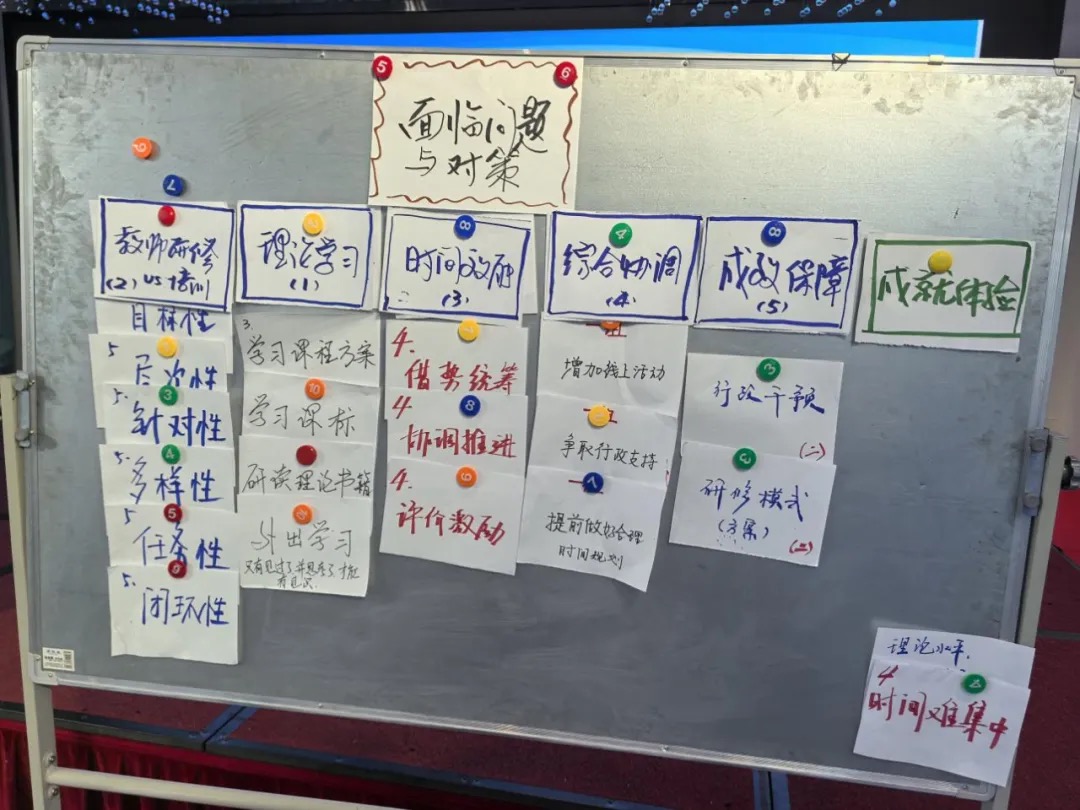 面临问题
与对策
教师研修
(2) VS 培训
目标性
5
层次性
5.
针对性
5.
多样性
5
任务性
5.
闭环性
理论学习
(1)
3.
学习课程方案
学习课标
研读理论书籍
外出学习
只有见过了并思考了才能
有见识
(3)
4.
借势统筹
4
协调推进
4.
评价激励
综合协调
(4)
增加线上活动
争取行政支持
提前做好合理
时间规划
成效保障
(5)
行政干预
(二)
研修模式
(方案)
(二)
成就体验
理论水平.
4
时间难集中